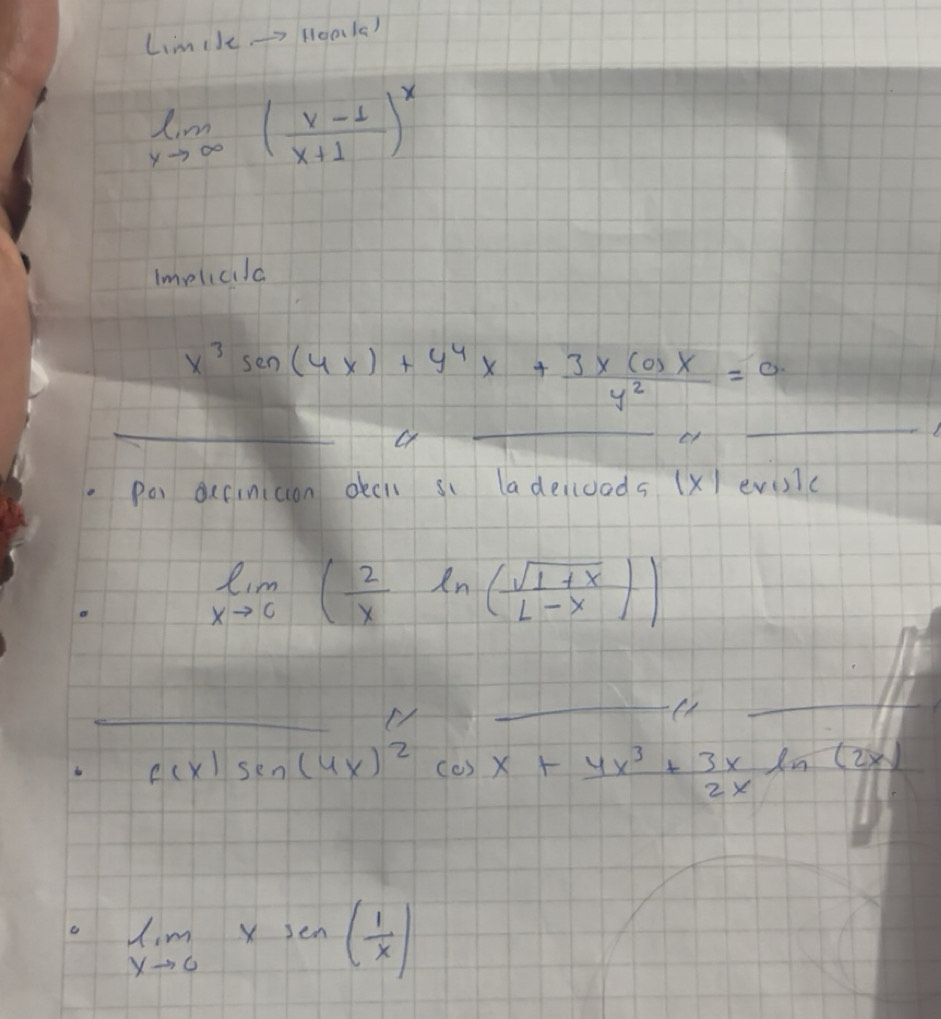 Limite → Hopital
lim x→∞ ( (x-1)/(x+1) )^x
Implicita
x³ sen(4x) + y⁴x + (3x cos x)/y² = 0
• Por definicion decir si la derivada (x) existe
• lim x→0 ( 2/x ln( √(1+x)/(1-x) ) )
• f(x) sen(4x)² cos x + 4x³ + 3x/2x ln (2x)
• lim x→0 x sen (1/x)